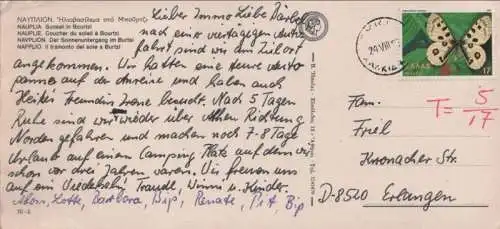 ΝΑΥΠΛΙΟΝ. Ἡλιοβασίλεμα στό Μπούρτζι
NAUPLIA. Sunset in Bourtzi
NAUPLIE. Coucher du soleil à Bourtzi
NAVPLION. Der Sonnenuntergang im Burtzi
NAPPLIO. Il tramonto del sole à Burtzi
Lieber Immo, Liebe Bärbel
nach einer viertägigen Auto-
fahrt sind wir am Zielort
angekommen. Wir hatten eine
panne auf der Anreise und haben auch
Heikes Freundin Irene besucht. Nach 5 Tagen
Ruhe sind wir wieder über Athen Richtung
Norden gefahren und machen noch 7-8 Tage
Urlaub auf einem Camping Platz auf dem wir
schon vor drei Jahren waren. Wir freuen uns
auf ein Wiedersehn, Traudl, Winni u. Kinder.
Lotte, Barbara, Bip, Renate, Pit, Bip
ΕΛΛΑΣ
HELLAS
17
T = 5/17
Fam.
Friel
Kronacher Str.
D-8520 Erlangen